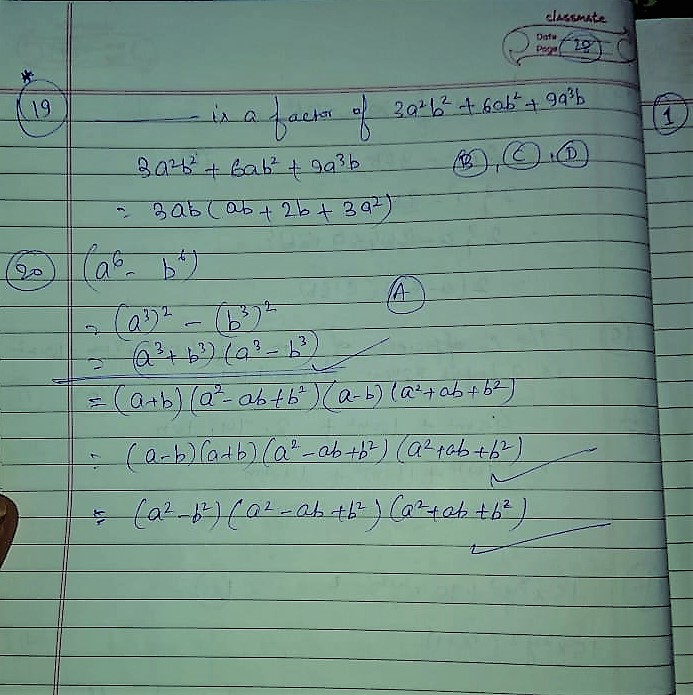 classmate
Date
Page 28
*
19 ________ is a factor of 3a²b² + 6ab² + 9a³b
1
3a²b² + 6ab² + 9a³b B, C, D
= 3ab(ab + 2b + 3a²)
20 (a⁶ - b⁶)
A
= (a³)² - (b³)²
= (a³ + b³)(a³ - b³)
= (a+b)(a² - ab + b²)(a-b)(a² + ab + b²)
= (a-b)(a+b)(a² - ab + b²)(a² + ab + b²)
= (a² - b²)(a² - ab + b²)(a² + ab + b²)